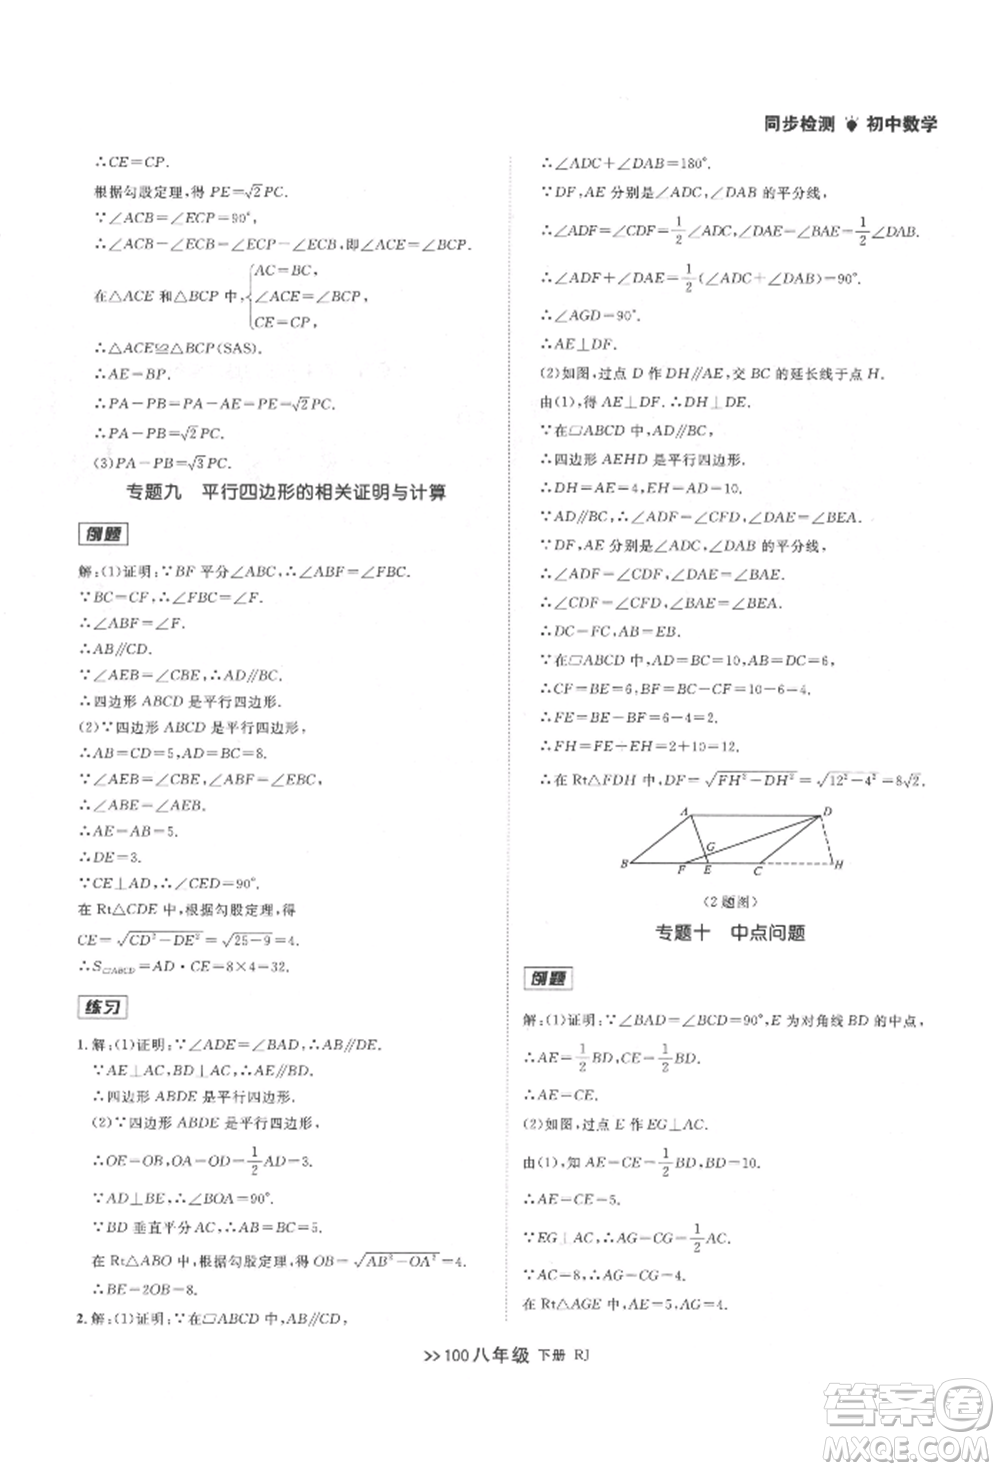 同步检测 初中数学
∴CE=CP.
根据勾股定理,得 PE=√2PC.
∵∠ACB=∠ECP=90°,
∴∠ACB-∠ECB=∠ECP-∠ECB,即∠ACE=∠BCP.
在△ACE 和△BCP 中,{AC=BC,
∠ACE=∠BCP,
CE=CP,
∴△ACE≌△BCP(SAS).
∴AE=BP.
∴PA-PB=PA-AE=PE=√2PC.
∴PA-PB=√2PC.
(3)PA-PB=√3PC.
专题九 平行四边形的相关证明与计算
例题
解:(1)证明:∵BF 平分∠ABC,∴∠ABF=∠FBC.
∵BC=CF,∴∠FBC=∠F.
∴∠ABF=∠F.
∴AB∥CD.
∵∠AEB=∠CBE,∴AD∥BC.
∴四边形 ABCD 是平行四边形.
(2)∵四边形 ABCD 是平行四边形,
∴AB=CD=5,AD=BC=8.
∵∠AEB=∠CBE,∠ABF=∠CBE,
∴∠ABE=∠AEB.
∴AE=AB=5.
∴DE=3.
∵CE⊥AD,∴∠CED=90°.
在 Rt△CDE 中,根据勾股定理,得
CE=√(CD²-DE²)=√(25-9)=4.
∴S▱ABCD=AD·CE=8×4=32.
练习
1.解:(1)证明:∵∠ADE=∠BAD,∴AB∥DE.
∵AE⊥AC,BD⊥AC,∴AE∥BD.
∴四边形 ABDE 是平行四边形.
(2)∵四边形 ABDE 是平行四边形,
∴OE=OB,OA=OD=1/2AD=3.
∵AD⊥BE,∴∠BOA=90°.
∵BD 垂直平分 AC,∴AB=BC=5.
在 Rt△ABO 中,根据勾股定理,得 OB=√(AB²-OA²)=4.
∴BE=2OB=8.
2.解:(1)证明:∵在▱ABCD 中,AB∥CD,
∴∠ADC+∠DAB=180°.
∵DF,AE 分别是∠ADC,∠DAB 的平分线,
∴∠ADF=∠CDF=1/2∠ADC,∠DAE=∠BAE=1/2∠DAB.
∴∠ADF+∠DAE=1/2(∠ADC+∠DAB)=90°.
∴∠AGD=90°.
∴AE⊥DF.
(2)如图,过点 D 作 DH∥AE,交 BC 的延长线于点 H.
由(1),得 AE⊥DF.∴DH⊥DE.
∵在▱ABCD 中,AD∥BC,
∴四边形 AEHD 是平行四边形.
∴DH=AE=4,EH=AD=10.
∵AD∥BC,∴∠ADF=∠CFD,∠DAE=∠BEA.
∵∠ADF=∠CDF,∠DAE=∠BAE,
∴∠CDF=∠CFD,∠BAE=∠BEA.
∴DC=FC,AB=EB.
∵在▱ABCD 中,BC=AD=10,AB=DC=6,
∴CF=BE=6,BF=BC-CF=10-6=4.
∴FE=BE-BF=6-4=2.
∴FH=FE+EH=2+10=12.
∴在 Rt△FDH 中,DF=√(FH²-DH²)=√(12²-4²)=8√2.
A D
G
B F E C H
(2题图)
专题十 中点问题
例题
解:(1)证明:∵∠BAD=∠BCD=90°,E 为对角线 BD 的中点,
∴AE=1/2BD,CE=1/2BD.
∴AE=CE.
(2)如图,过点 E 作 EG⊥AC.
由(1),知 AE=CE=1/2BD,BD=10.
∴AE=CE=5.
∵EG⊥AC,∴AG=CG=1/2AC.
∵AC=8,∴AG=CG=4.
在 Rt△AGE 中,AE=5,AG=4,
>>100 八年级 下册 RJ
答案圈
MXQE.COM